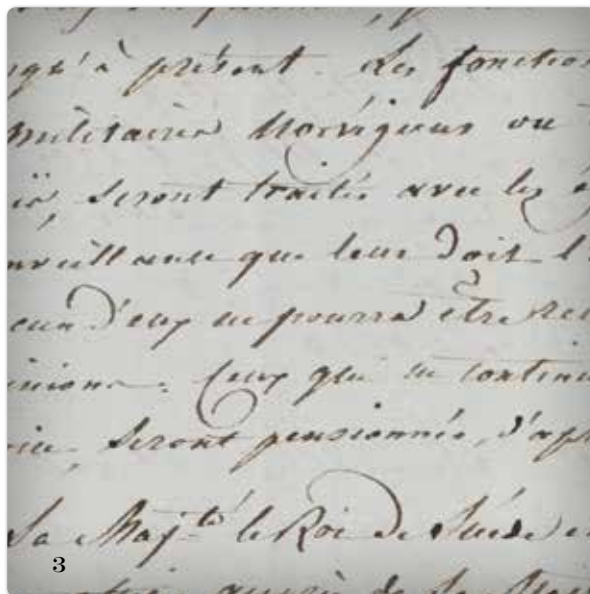 squ'à présent. Les fonction
militaires Norvégiens ou
is, seront traités avec les é
nveillance que leur doit l'
cun d'eux ne pourra être rec
inions. Ceux qui ne continu
vice, seront pensionnés, d'apr
Sa Maj.té le Roi de Suède e
auprès de Sa Maj
3